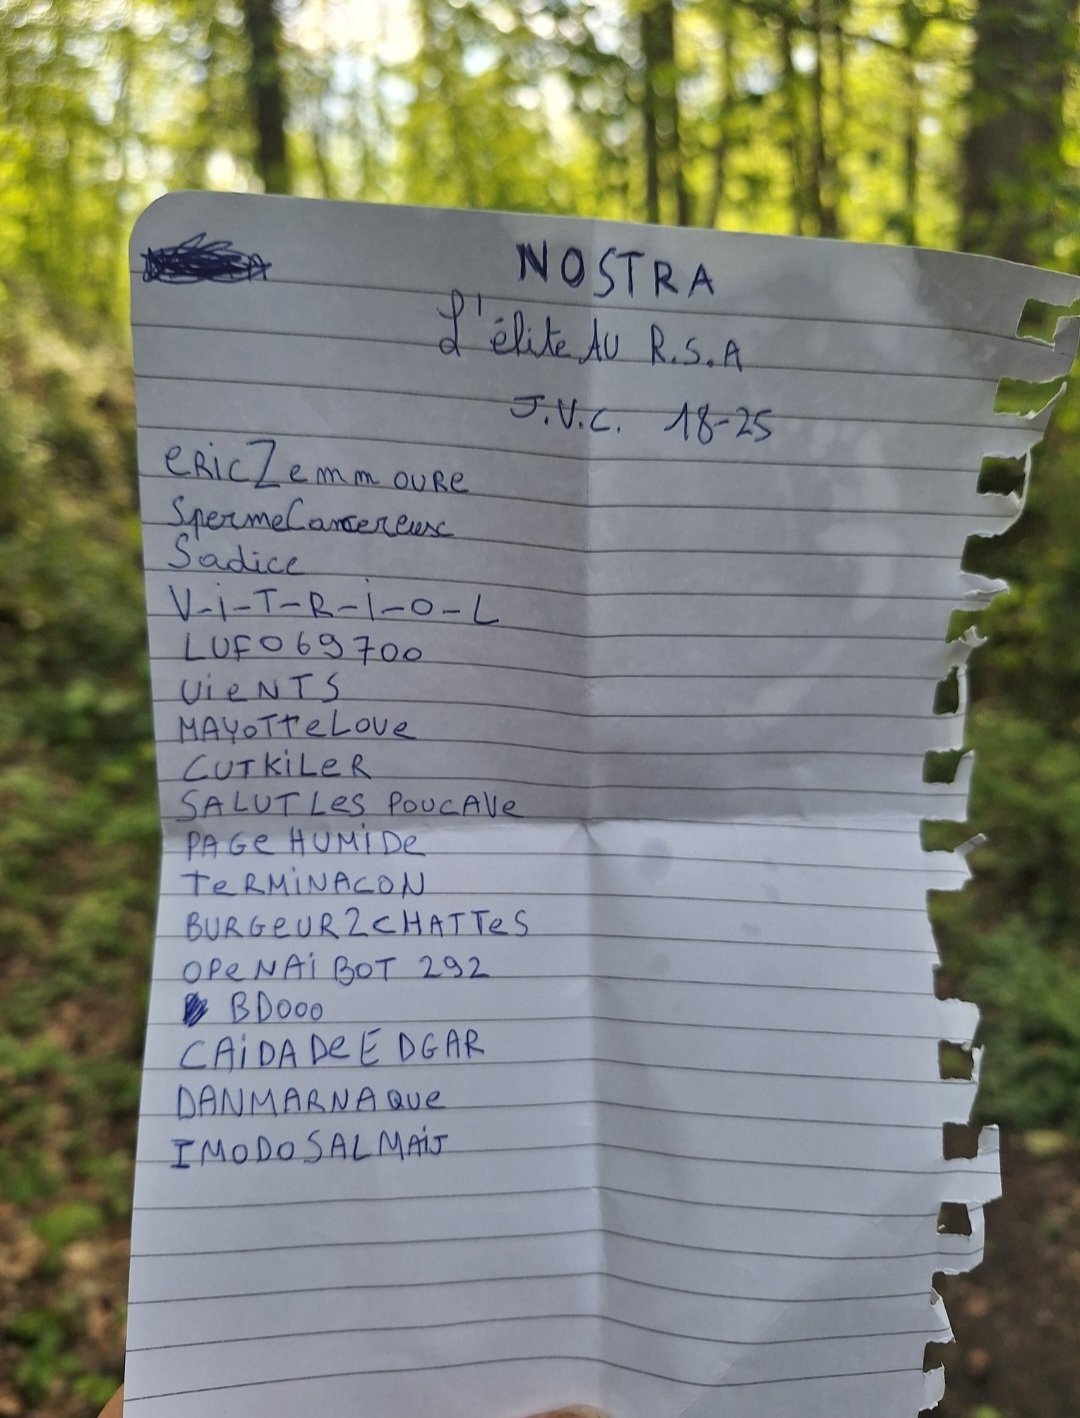 NOSTRA
L'élite AU R.S.A
J.V.C. 18-25
eRicZemmouRe
SpermeCancereux
Sadice
V-i-T-R-i-O-L
LUFO69700
UieNTS
MAYoTTeLove
CUTKiLeR
SALUTLes PoUCAVe
PAGe HUMiDe
TeRMiNACON
BURGeUR2CHATTeS
OPeNAi BOT 292
BDooo
CAiDADeEDGAR
DANMARNAQUe
IMODOSALMAiJ